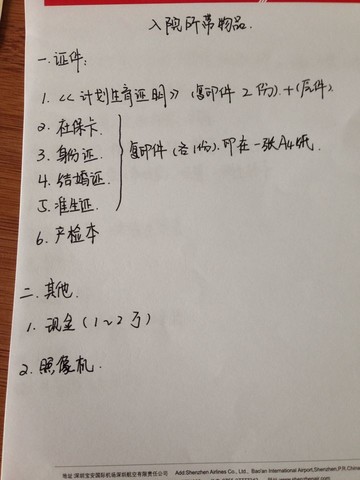 入院所带物品.
一.证件:
1.《计划生育证明》(复印件2份).+(原件).
2.社保卡.
3.身份证.
4.结婚证.
5.准生证.
复印件(各1份).印在一张A4纸.
6.产检本
二.其他.
1.现金(1~2万)
2.照像机.
地址:深圳宝安国际机场深圳航空有限责任公司 Add:Shenzhen Airlines Co., Ltd., Bao'an International Airport, Shenzhen, P.R. China